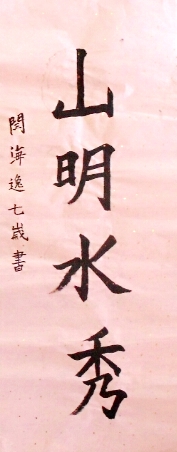 山明水秀
閔海逸七歲書